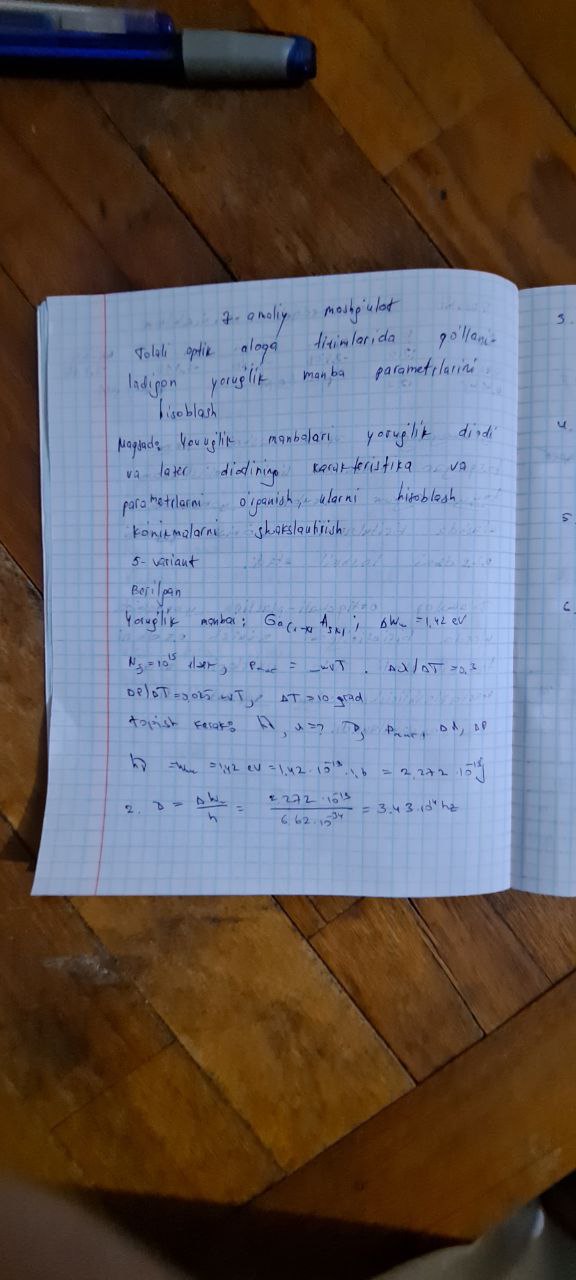 7-amaliy mashg'ulot
Tolali optik aloqa tizimlarida qo'llani-
ladigan yorug'lik manba parametrlarini
hisoblash
Maqsad: Yorug'lik manbalari yorug'lik diodi
va lazer diodining karakteristika va
parametrlarni o'rganish, ularni hisoblash
ko'nikmalarni shakslantirish
5-variant
Berilgan
Yorug'lik manbai; ΔWₘ = 1,42 eV
= 10¹⁵ = mVT . Δλ/ΔT = 0,3
ΔP/ΔT = 0,025 mVT, ΔT = 10 grad
Topish kerak: Δλ, ΔP
= 1,42 eV = 1,42 · 10⁻¹⁹ · 1,6 = 2,272 · 10⁻¹⁹ J
2. ν = ΔWₘ/h = 2,272 · 10⁻¹⁹ / 6,62 · 10⁻³⁴ = 3,43 · 10¹⁴ hz
3.
4.
5
6.